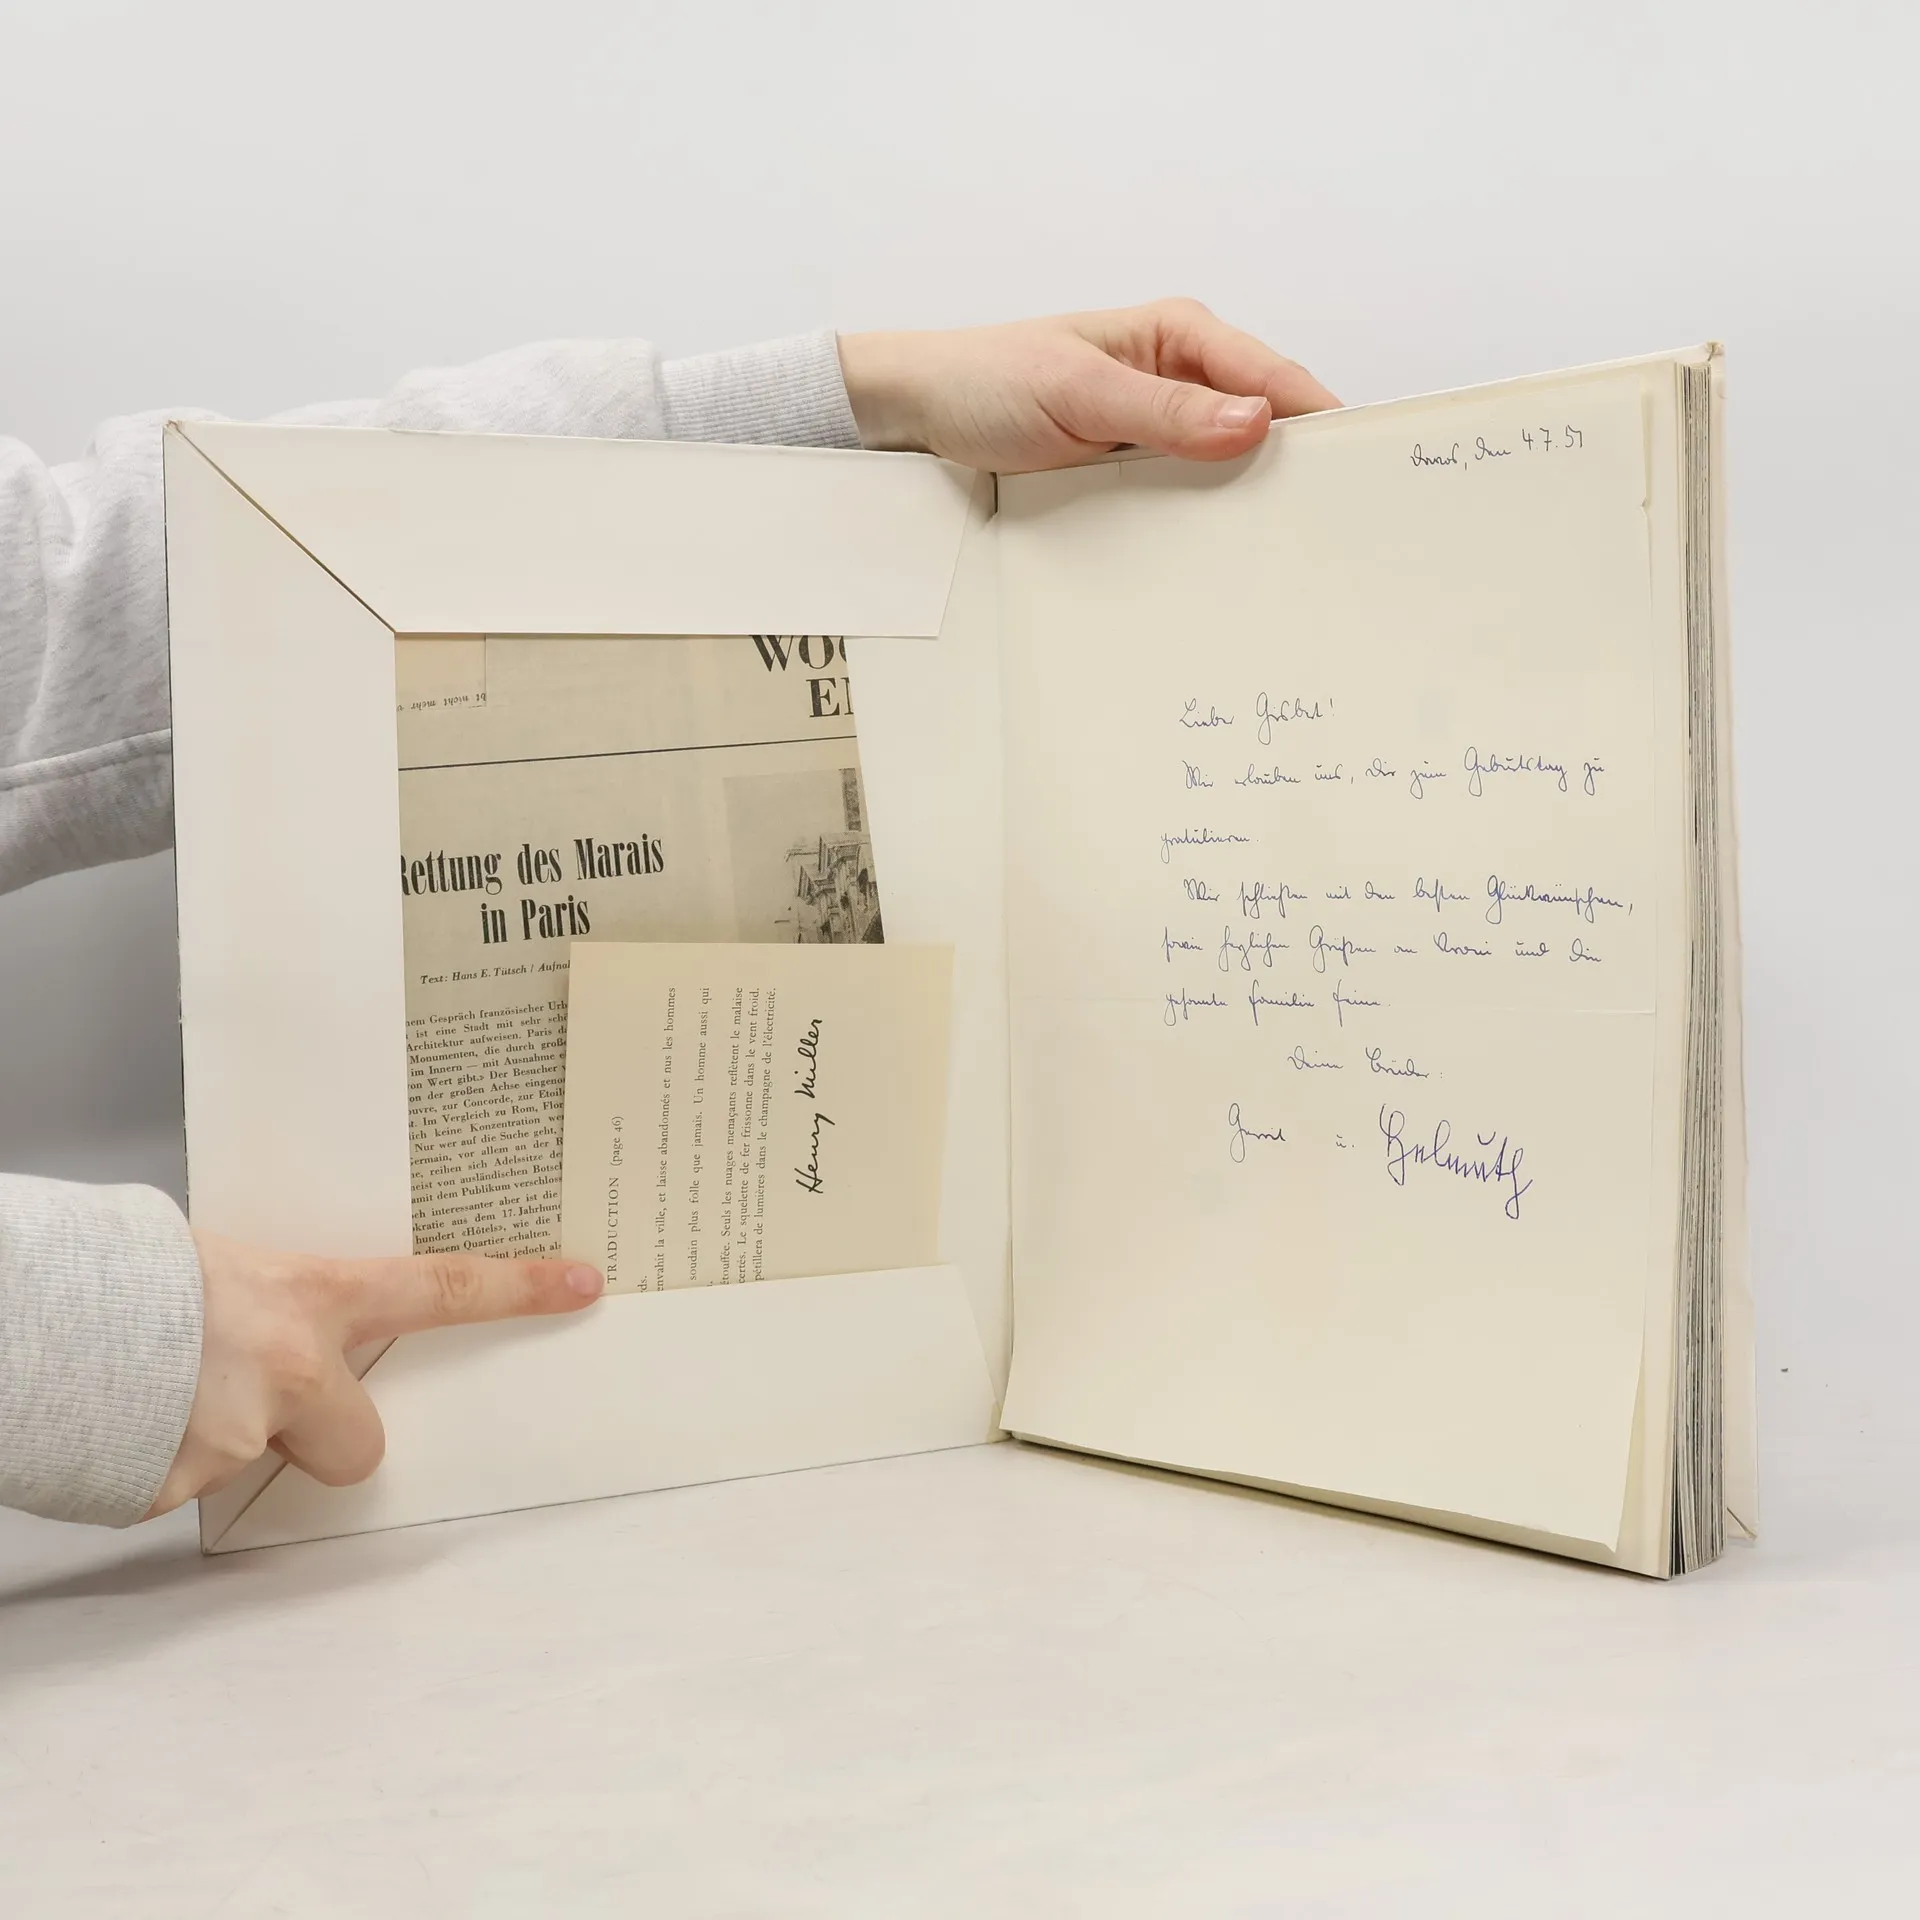 bt nicht mehr
WOC
EN
Rettung des Marais
in Paris
Text: Hans E. Tütsch / Aufnah
nem Gespräch französischer Urb
ist eine Stadt mit sehr schö
Architektur aufweisen. Paris
Monumenten, die durch große
im Innern — mit Ausnahme
von Wert gibt.» Der Besucher
on der großen Achse eingenom
ouvre, zur Concorde, zur Etoile
t. Im Vergleich zu Rom, Flor
lich keine Konzentration
Nur wer auf die Suche geht,
Germain, vor allem an der R
ne, reihen sich Adelssitze
eist von ausländischen Botsch
amit dem Publikum verschloss
ch interessanter aber ist die
kratie aus dem 17. Jahrhun
hundert «Hôtels», wie die
n diesem Quartier erhalten.
eint jedoch als
TRADUCTION (page 46)
rds.
envahit la ville, et laisse abandonnés et nus les hommes
soudain plus folle que jamais. Un homme aussi qui
étouffée. Seuls les nuages menaçants reflètent le malaise
certés. Le squelette de fer frissonne dans le vent froid.
pétillera de lumières dans le champagne de l'électricité.
Henry Miller
Davos, den 4.7.57
Lieber Gisbert!
Wir erlauben uns, Dir zum Geburtstag zu
gratulieren.
Wir schließen mit den besten Glückwünschen,
sowie herzlichen Grüßen an Vroni und die
gesamte Familie
Deine Brüder:
Gerrit u. Helmuth